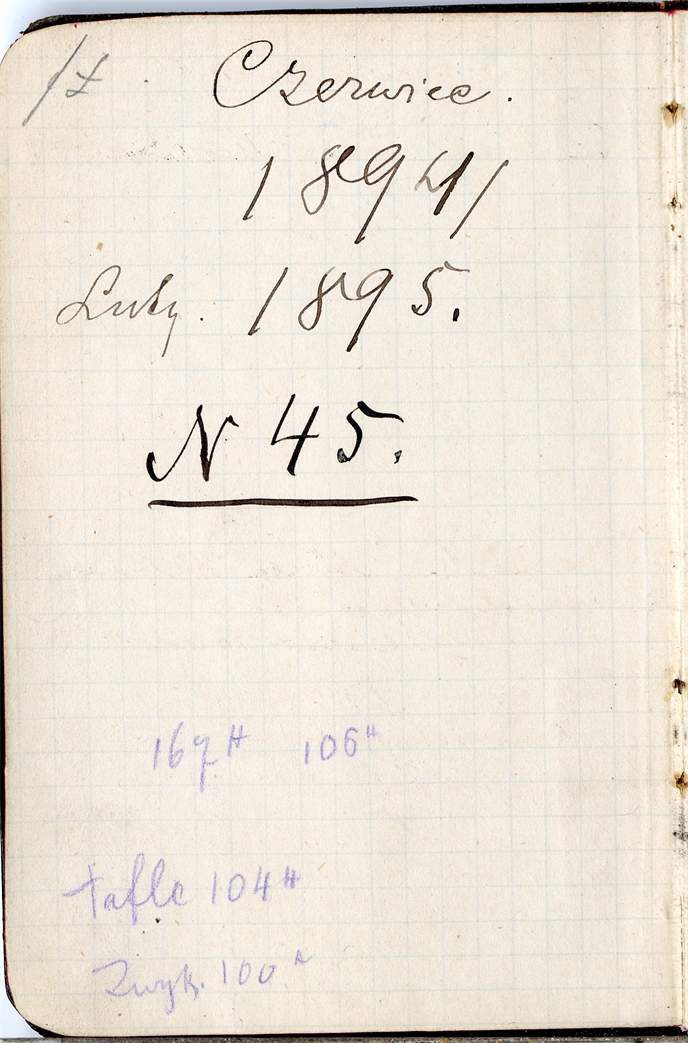 Czerwiec.
1894/
Luty. 1895.
N 45.
167 H 106 H
tafle 104 H
Zwyk. 100